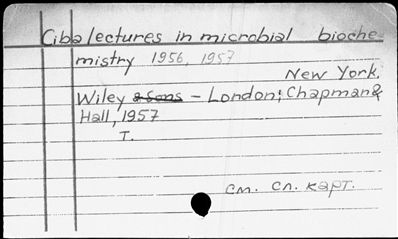 Ciba lectures in microbial bioche
mistry 1956, 1957
New York,
Wiley & Sons – London; Chapman &
Hall, 1957
T.
см. сл. карт.